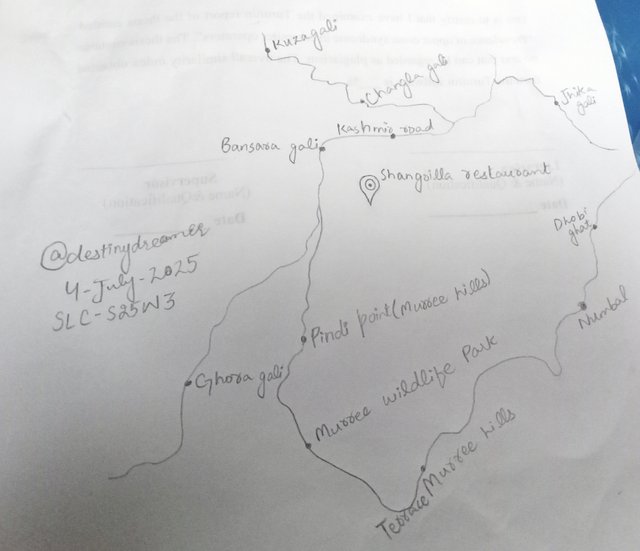 Kuzagali
Changla gali
Jhika
gali
Kashmir road
Bansara gali
Shangrilla restaurant
Dhobi
ghat
@destinydreamer
4-July-2025
SLC-S25W3
Numbal
Pindi point (Murree hills)
Ghora gali
Murree wildlife Park
Terrace Murree hills
Supervisor
(Name & Qualification)
Date